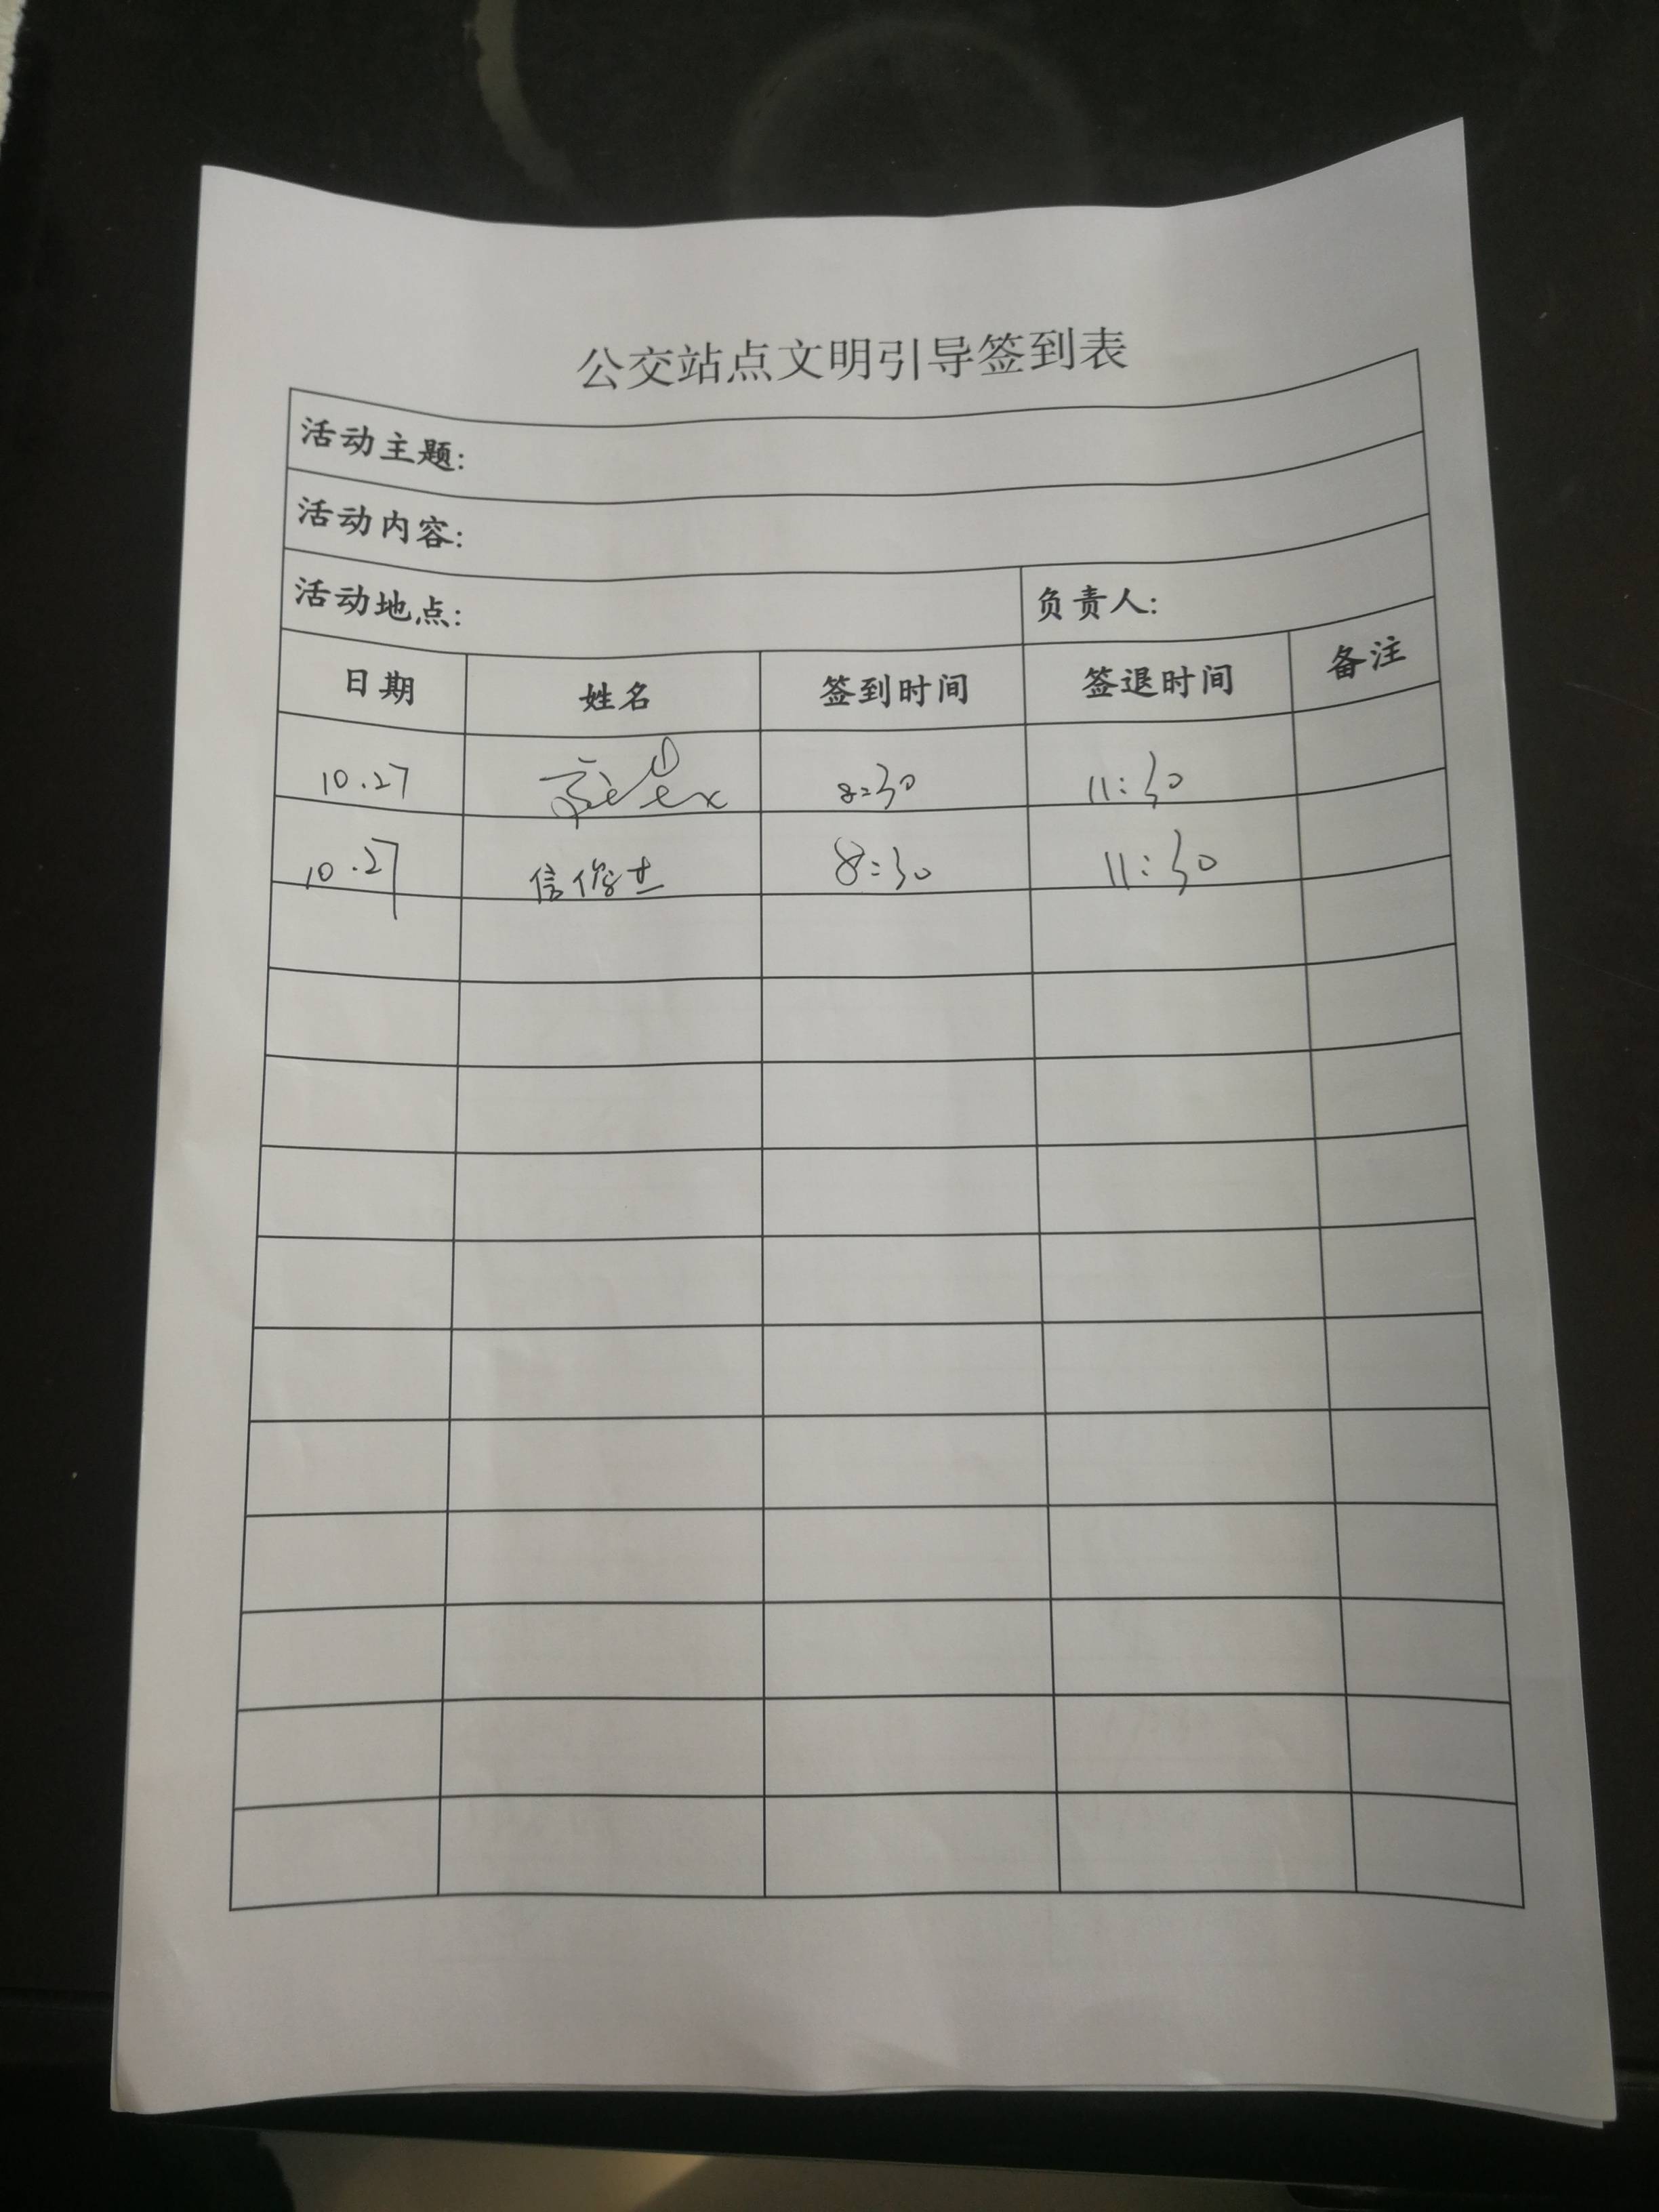 公交站点文明引导签到表
活动主题:
活动内容:
活动地点: 负责人:
日期 姓名 签到时间 签退时间 备注
10.27 8:30 11:30
10.27 信 8:30 11:30